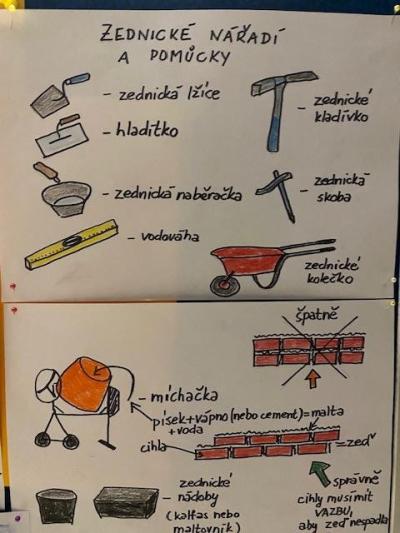 ZEDNICKÉ NÁŘADÍ
A POMŮCKY
- zednická lžíce
- hladítko
- zednická naběračka
- vodováha
- zednické
kladívko
- zednická
skoba
zednické
kolečko
špatně
- míchačka
písek+vápno (nebo cement)=malta
+voda
cihla
=zeď
- zednické
nádoby
(kalfas nebo
maltovník)
správně
cihly musí mít
VAZBU,
aby zeď nespadla